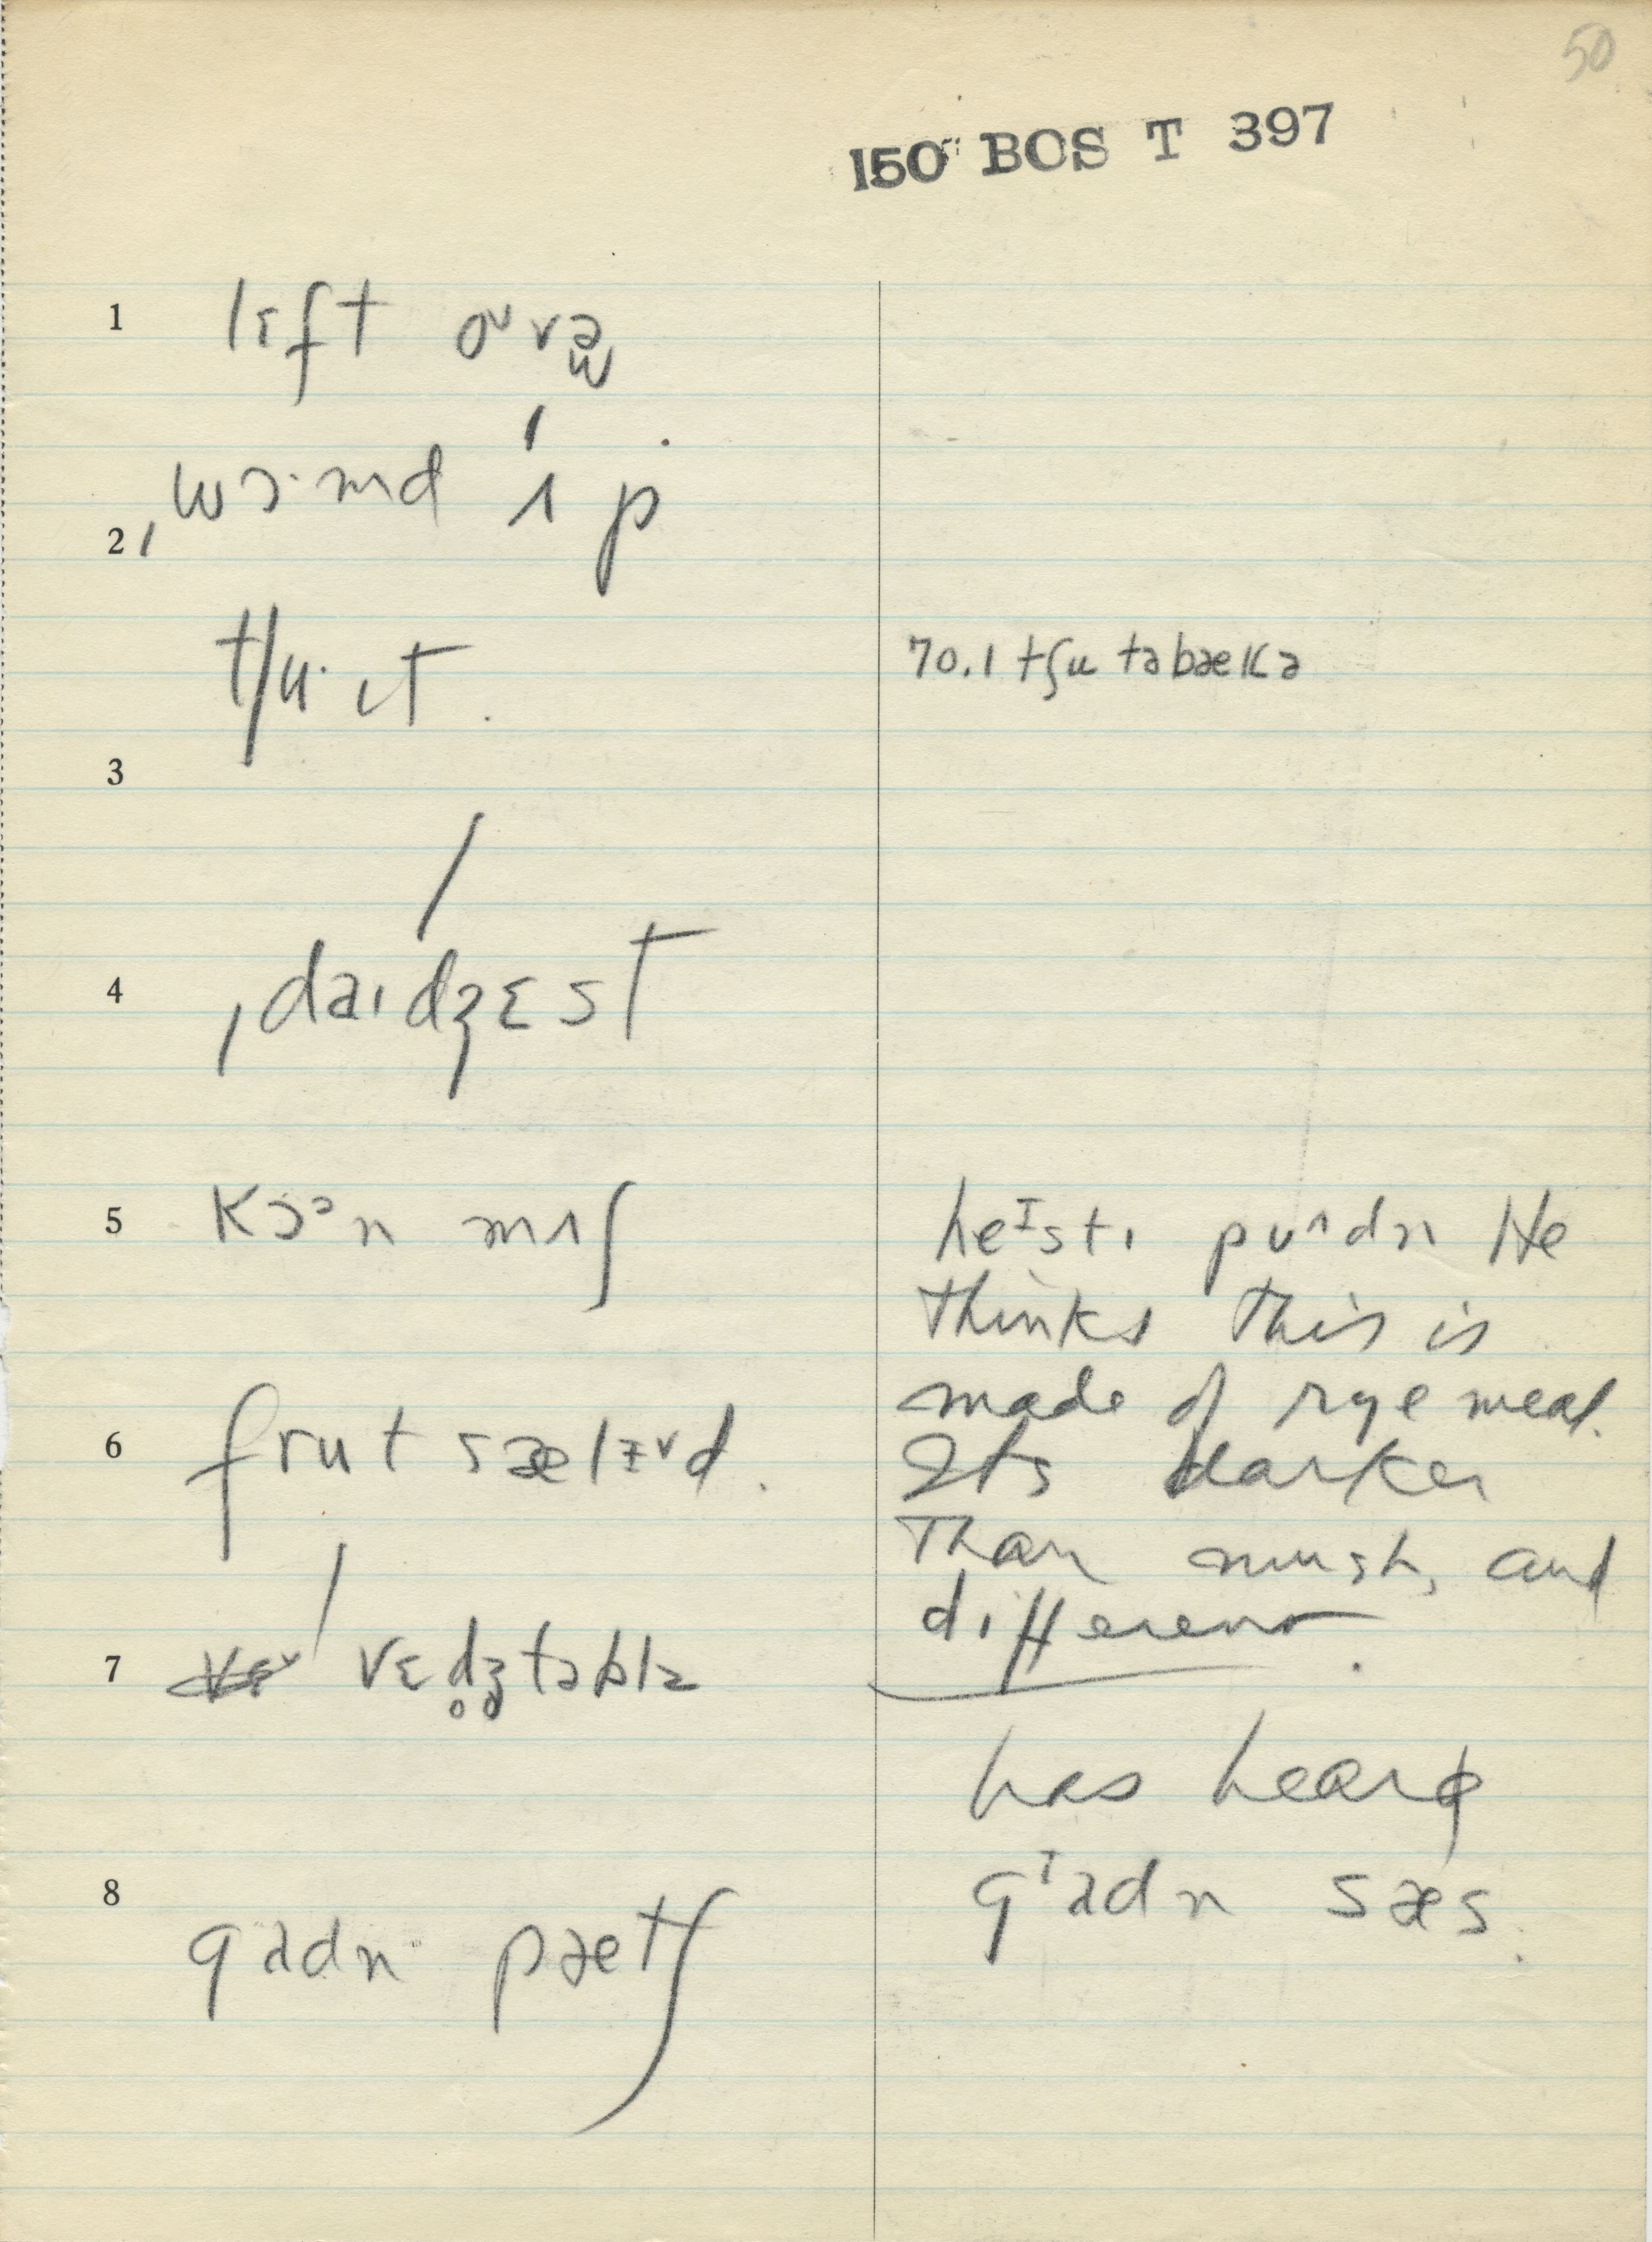 50
150 BOS T 397
1 lɛft oᵘvə
2 ˌwɔ·md ˈʌp
3 tʃu· ɪt.
70.1 tʃu təbækə
4 ˌdaɪˈdʒɛst
5 kɔᵊn mʌʃ
heᴵstɪ pʊᶺdn He
thinks this is
made of rye meal.
Its darker
than mush, and
different.
6 frut sælɪd.
7 ˈvɛdʒ̥təblz
has heard
gᴵadn sæs.
8 gadn pætʃ